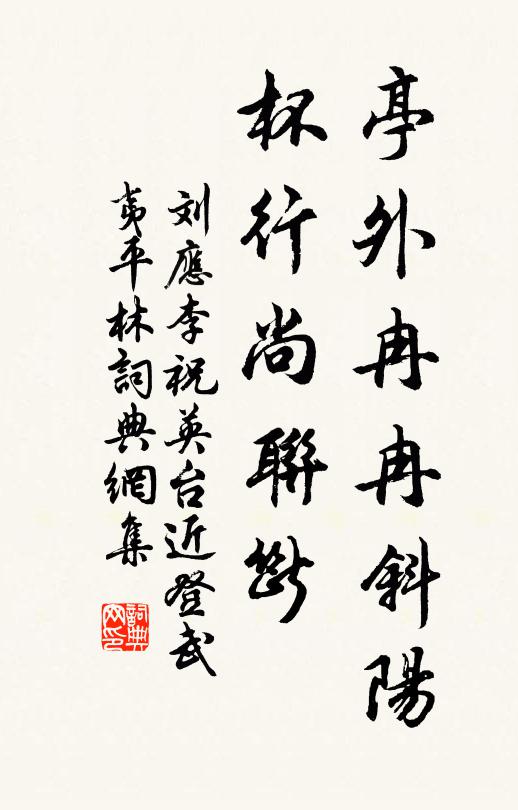 亭外冉冉斜陽
杯行尚聯斷
刘應李祝英台近登武
夷平林詞典網集
詞典
网印